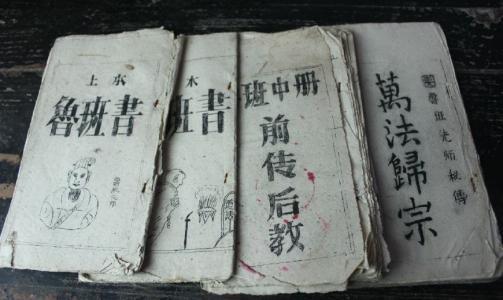 上本
魯班書
本
班書
班中册
前传后教
萬法歸宗
魯班先師秘傳